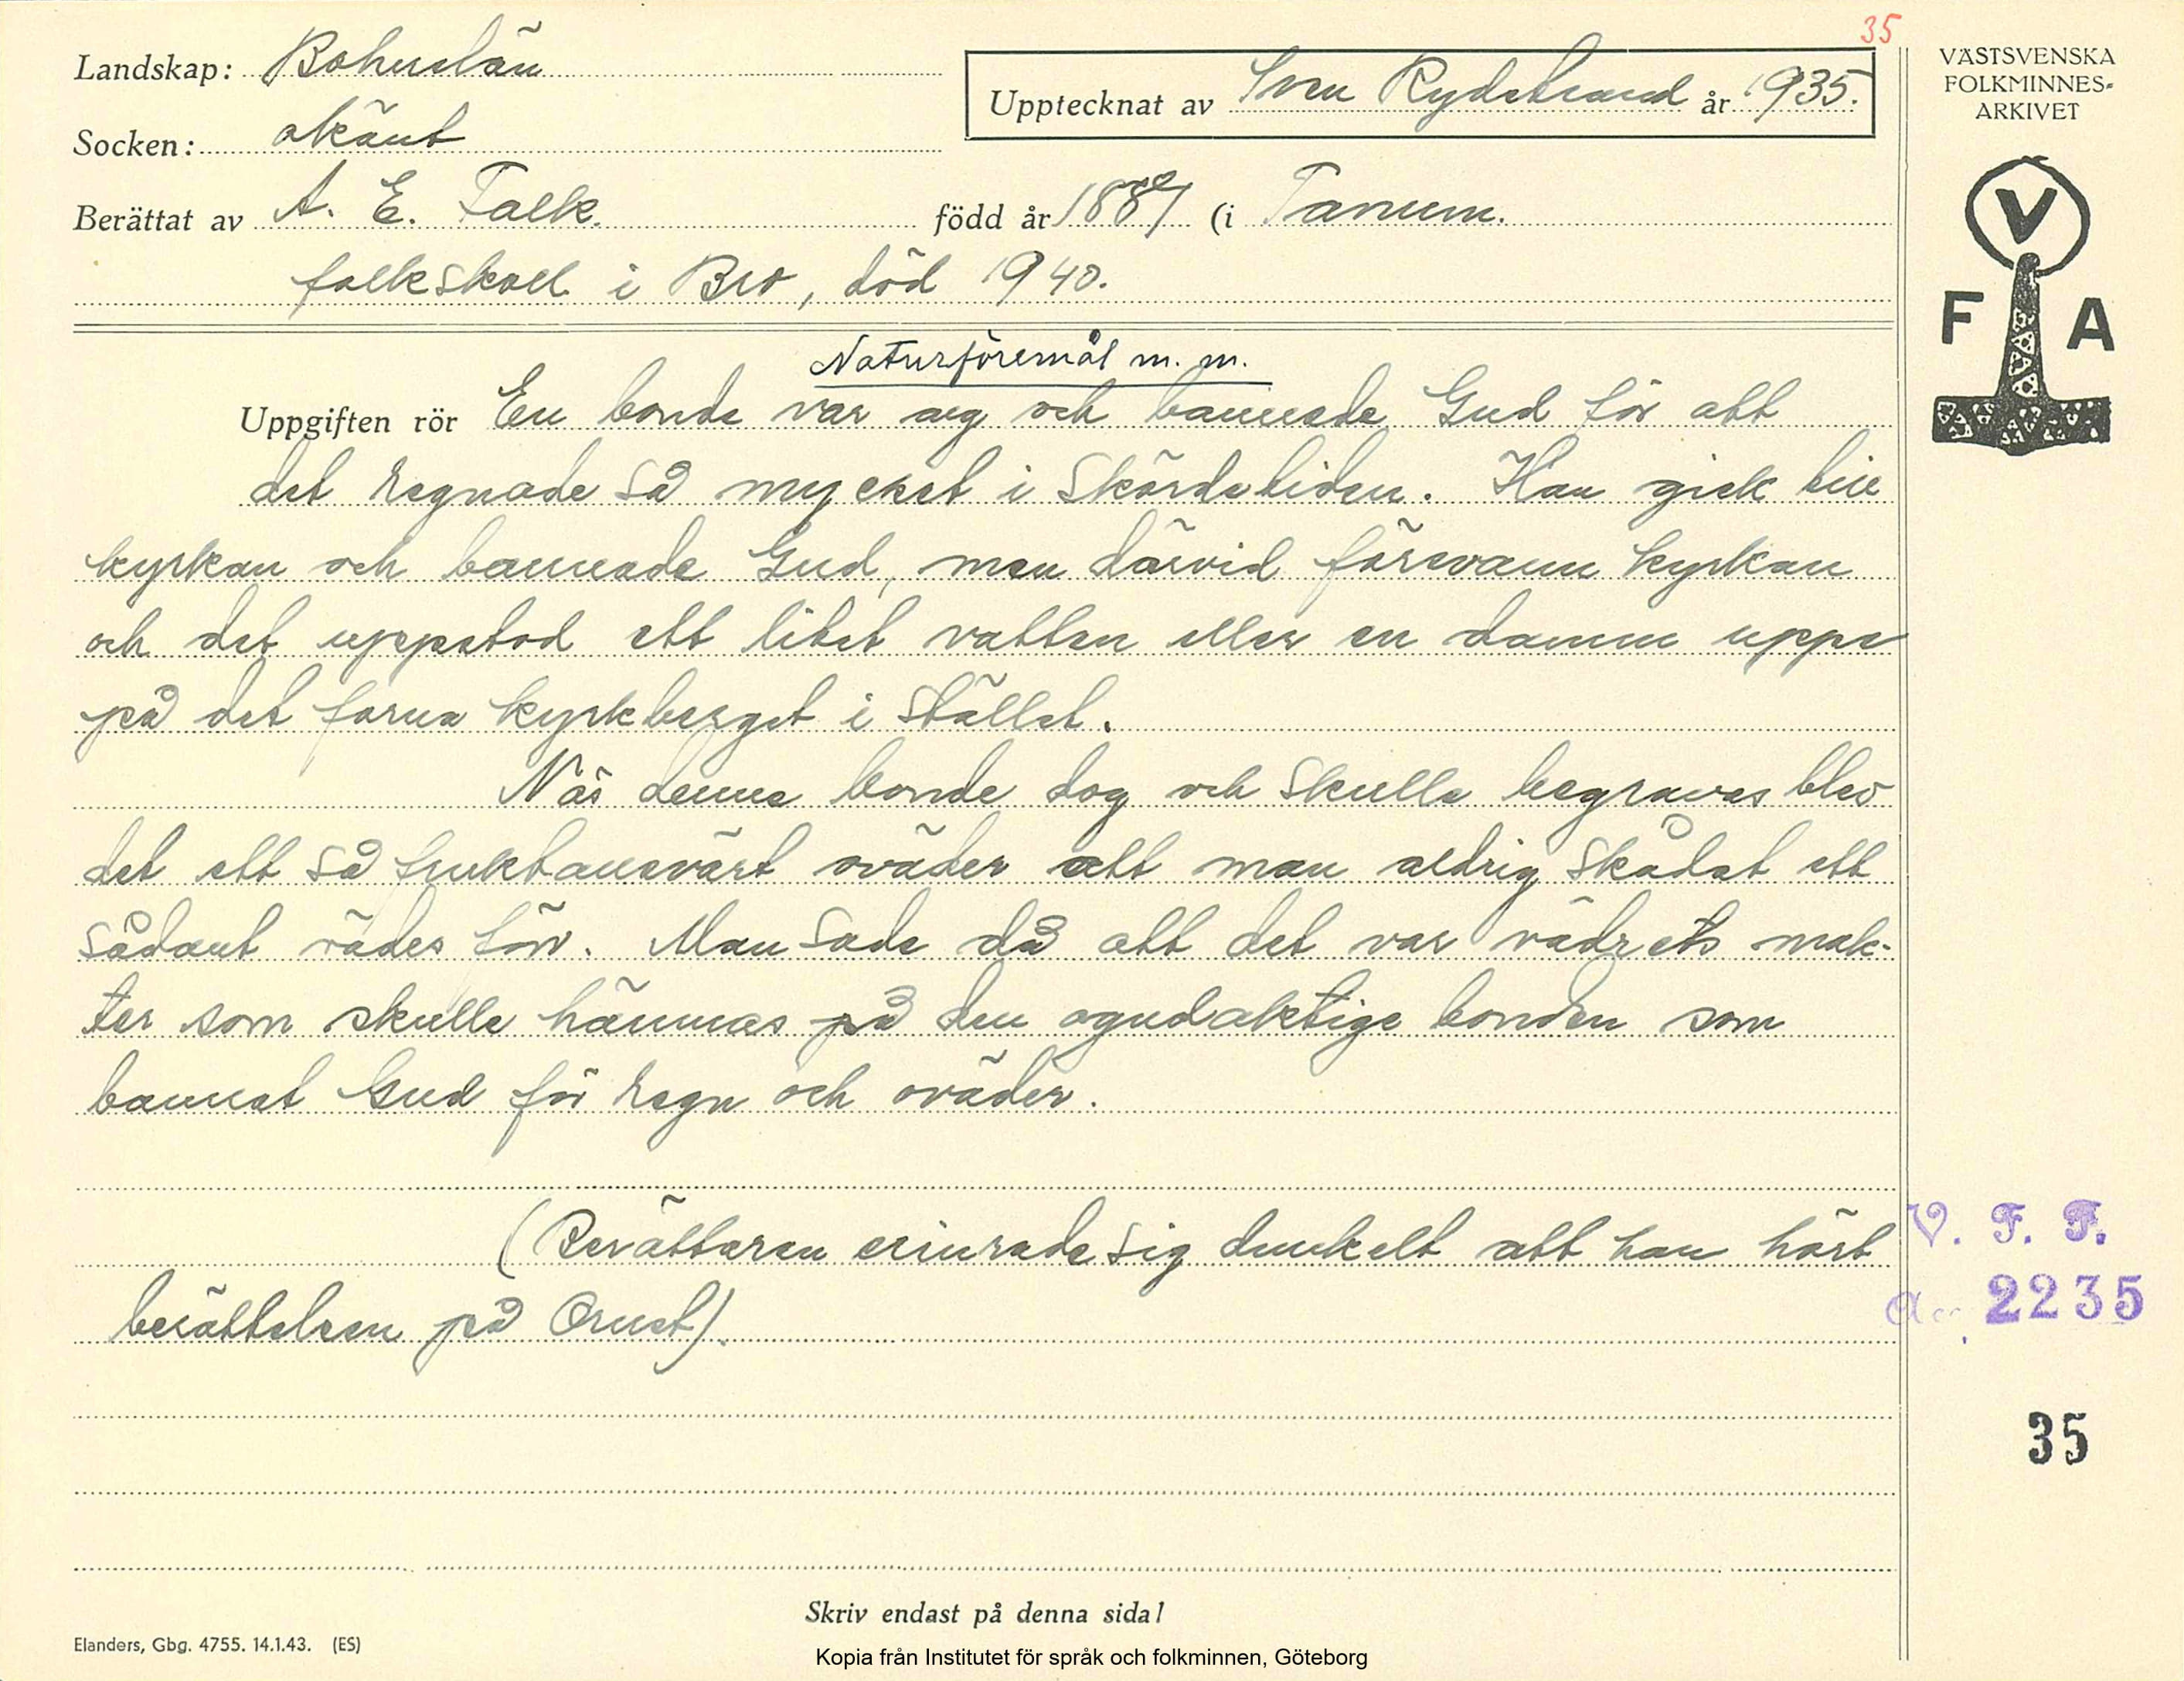 35
Landskap: Bohuslän
Upptecknat av Sven Rydstrand år 1935.
VÄSTSVENSKA
FOLKMINNES-
ARKIVET
Socken: okänt
Berättat av A. E. Falk. född år 1887 (i Tanum.
folkskoll. i Bro, död 1940.
V
F A
Naturföremål m. m.
Uppgiften rör En bonde var arg och bannade Gud för att
det regnade så mycket i skördetiden. Han gick till
kyrkan och bannade Gud, men därvid försvann kyrkan
och det uppstod ett litet vatten eller en damm uppe
på det forna kyrkberget i stället.
När denne bonde dog och skulle begravas blev
det ett så fruktansvärt oväder att man aldrig skådat ett
sådant väder förr. Man sade då att det var vädrets mak-
ter som skulle hämnas på den ogudaktige bonden som
bannat Gud för regn och oväder.
(Berättaren erinrade sig dunkelt att han hört
berättelsen på Orust).
V. F. F.
Acc. 2235
35
Skriv endast på denna sida!
Elanders, Gbg. 4755. 14.1.43. (ES)
Kopia från Institutet för språk och folkminnen, Göteborg